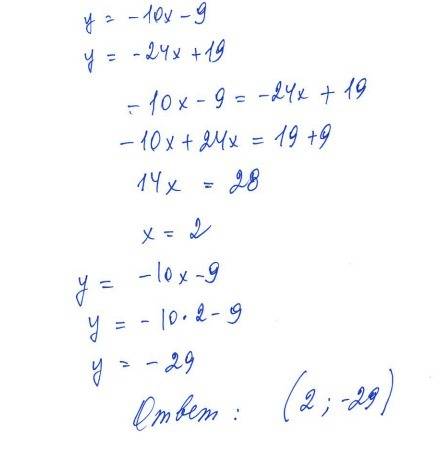 y = -10x - 9
y = -24x + 19
-10x - 9 = -24x + 19
-10x + 24x = 19 + 9
14x = 28
x = 2
y = -10x - 9
y = -10·2 - 9
y = -29
Ответ: (2; -29)